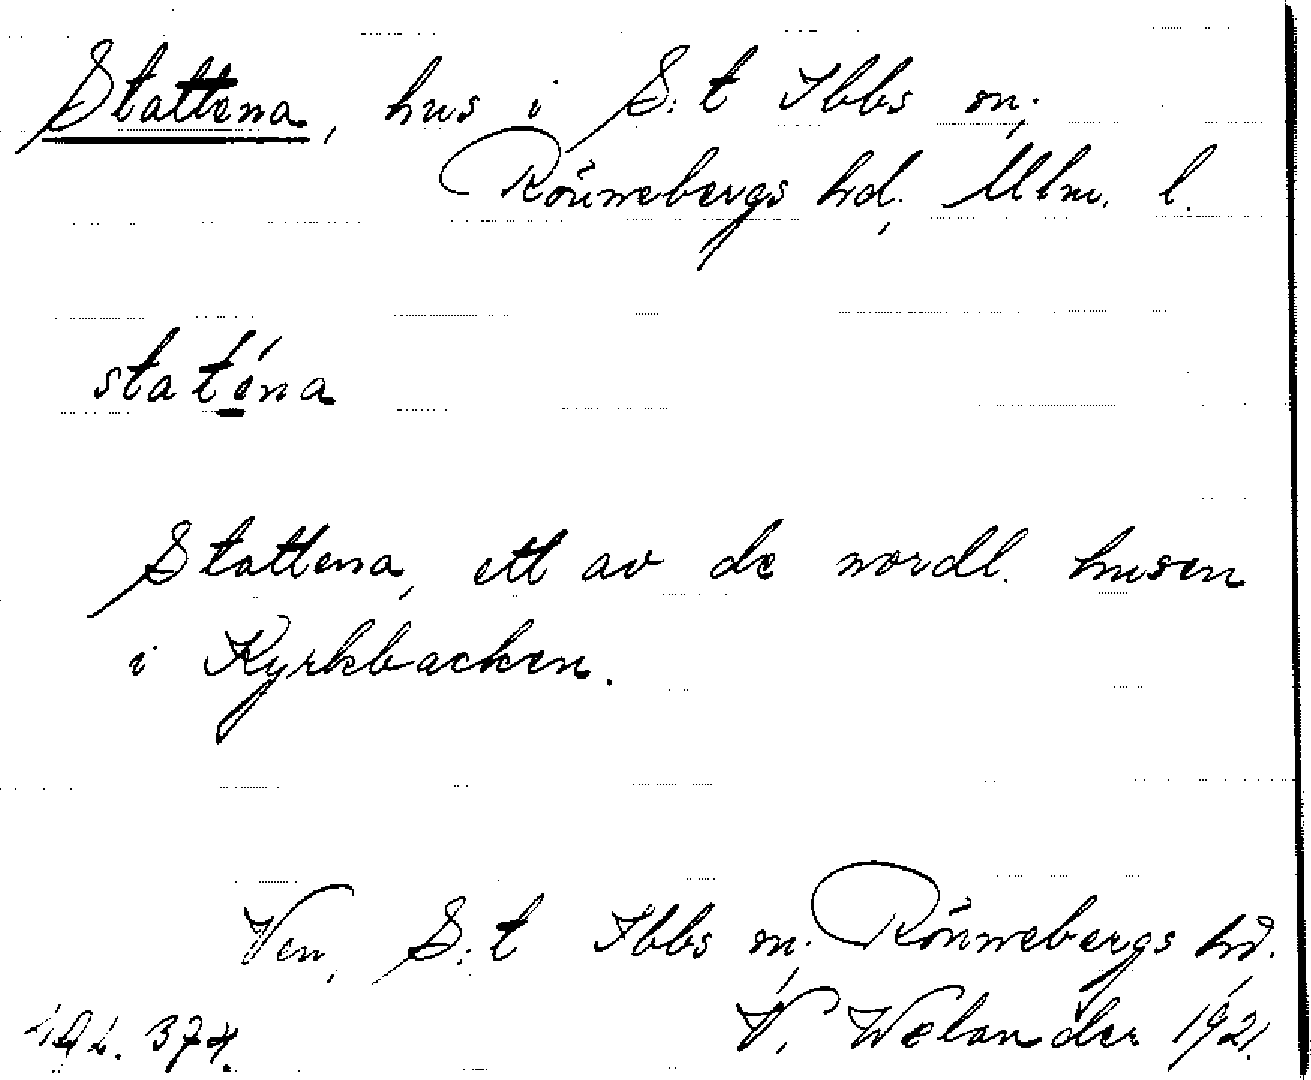 Stattena, hus i S:t Ibbs sn;
Rönnebergs hd, Mlm. l.
staténa
Stattena, ett av de nordl. husen
i Kyrkbacken.
Ven, S:t Ibbs sn, Rönnebergs hd.
V. Welander 1921.
374.